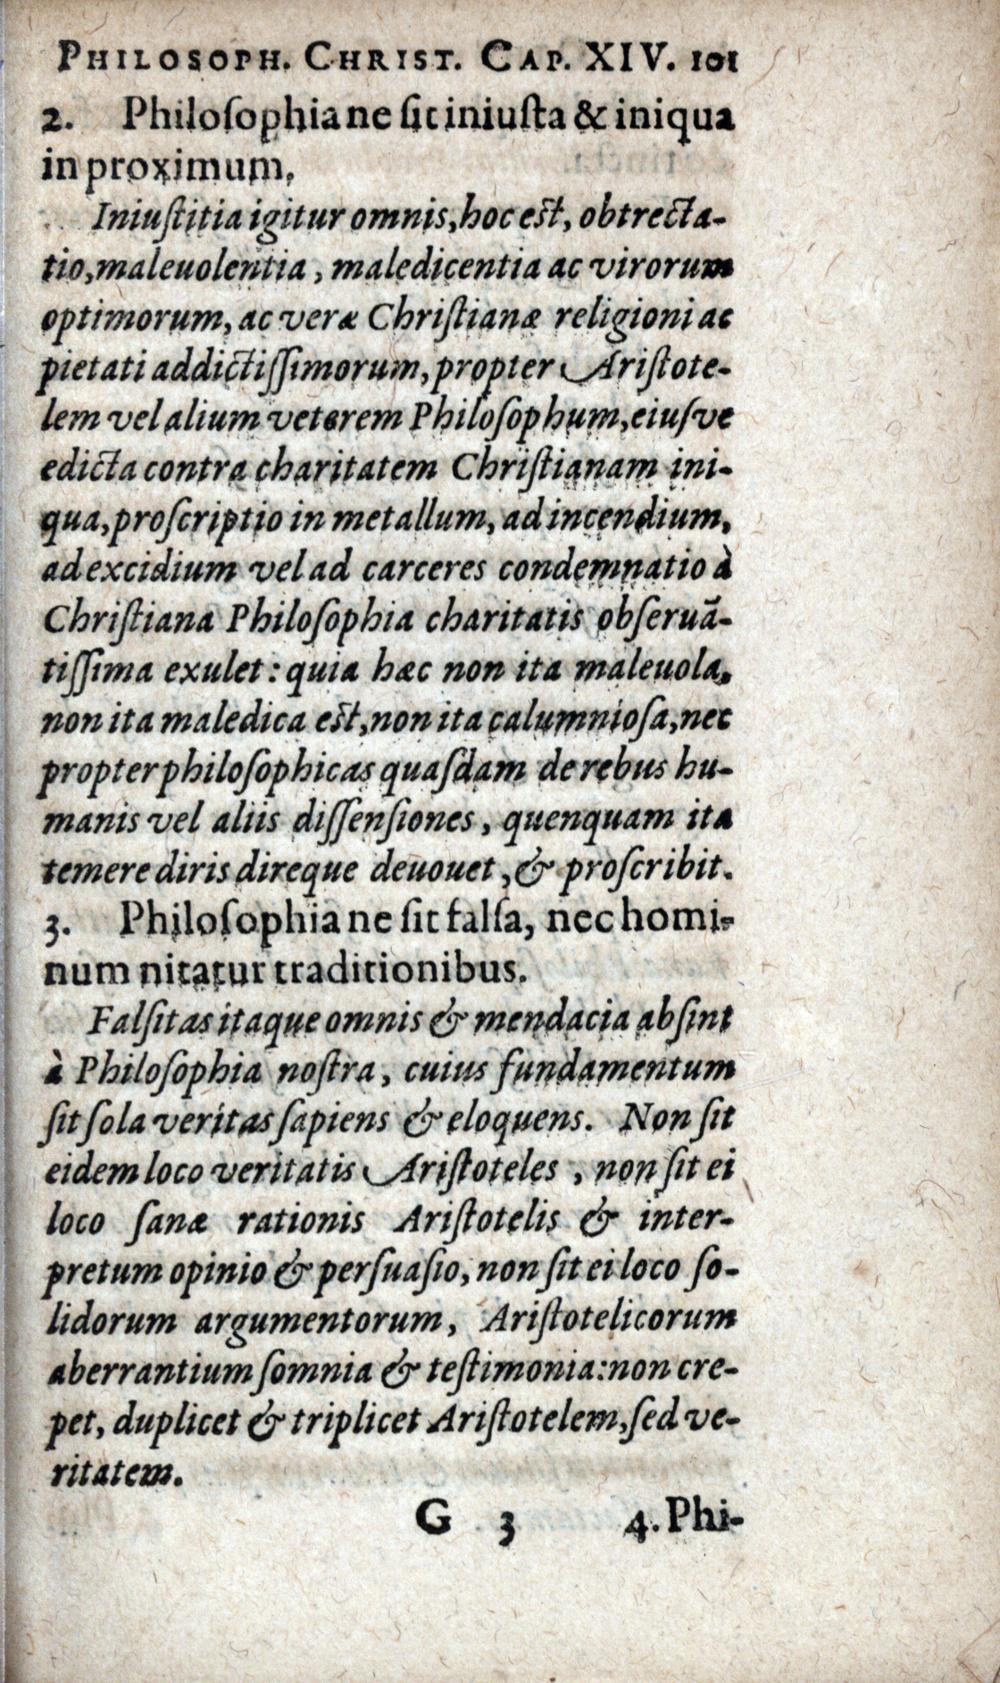 PHILOSOPH. CHRIST. CAP. XIV. 101
2. Philoſophia ne ſit iniuſta & iniqua
in proximum.
Iniuſtitia igitur omnis, hoc eſt, obtrecta-
tio, maleuolentia, maledicentia ac virorum
optimorum, ac veræ Chriſtianæ religioni ac
pietati addictiſſimorum, propter Ariſtote-
lem vel alium veterem Philoſophum, eiuſve
edicta contra charitatem Chriſtianam ini-
qua, proſcriptio in metallum, ad incendium,
ad excidium vel ad carceres condemnatio à
Chriſtiana Philoſophia charitatis obſeruā-
tiſſima exulet: quia hæc non ita maleuola,
non ita maledica eſt, non ita calumnioſa, nec
propter philoſophicas quaſdam de rebus hu-
manis vel aliis diſſenſiones, quenquam ita
temere diris direque deuouet, & proſcribit.
3. Philoſophia ne ſit falſa, nec homi-
num nitatur traditionibus.
Falſitas itaque omnis & mendacia abſint
à Philoſophia noſtra, cuius fundamentum
ſit ſola veritas ſapiens & eloquens. Non ſit
eidem loco veritatis Ariſtoteles, non ſit ei
loco ſanæ rationis Ariſtotelis & inter-
pretum opinio & perſuaſio, non ſit ei loco ſo-
lidorum argumentorum, Ariſtotelicorum
aberrantium ſomnia & teſtimonia: non cre-
pet, duplicet & triplicet Ariſtotelem, ſed ve-
ritatem.
G 3 4. Phi-